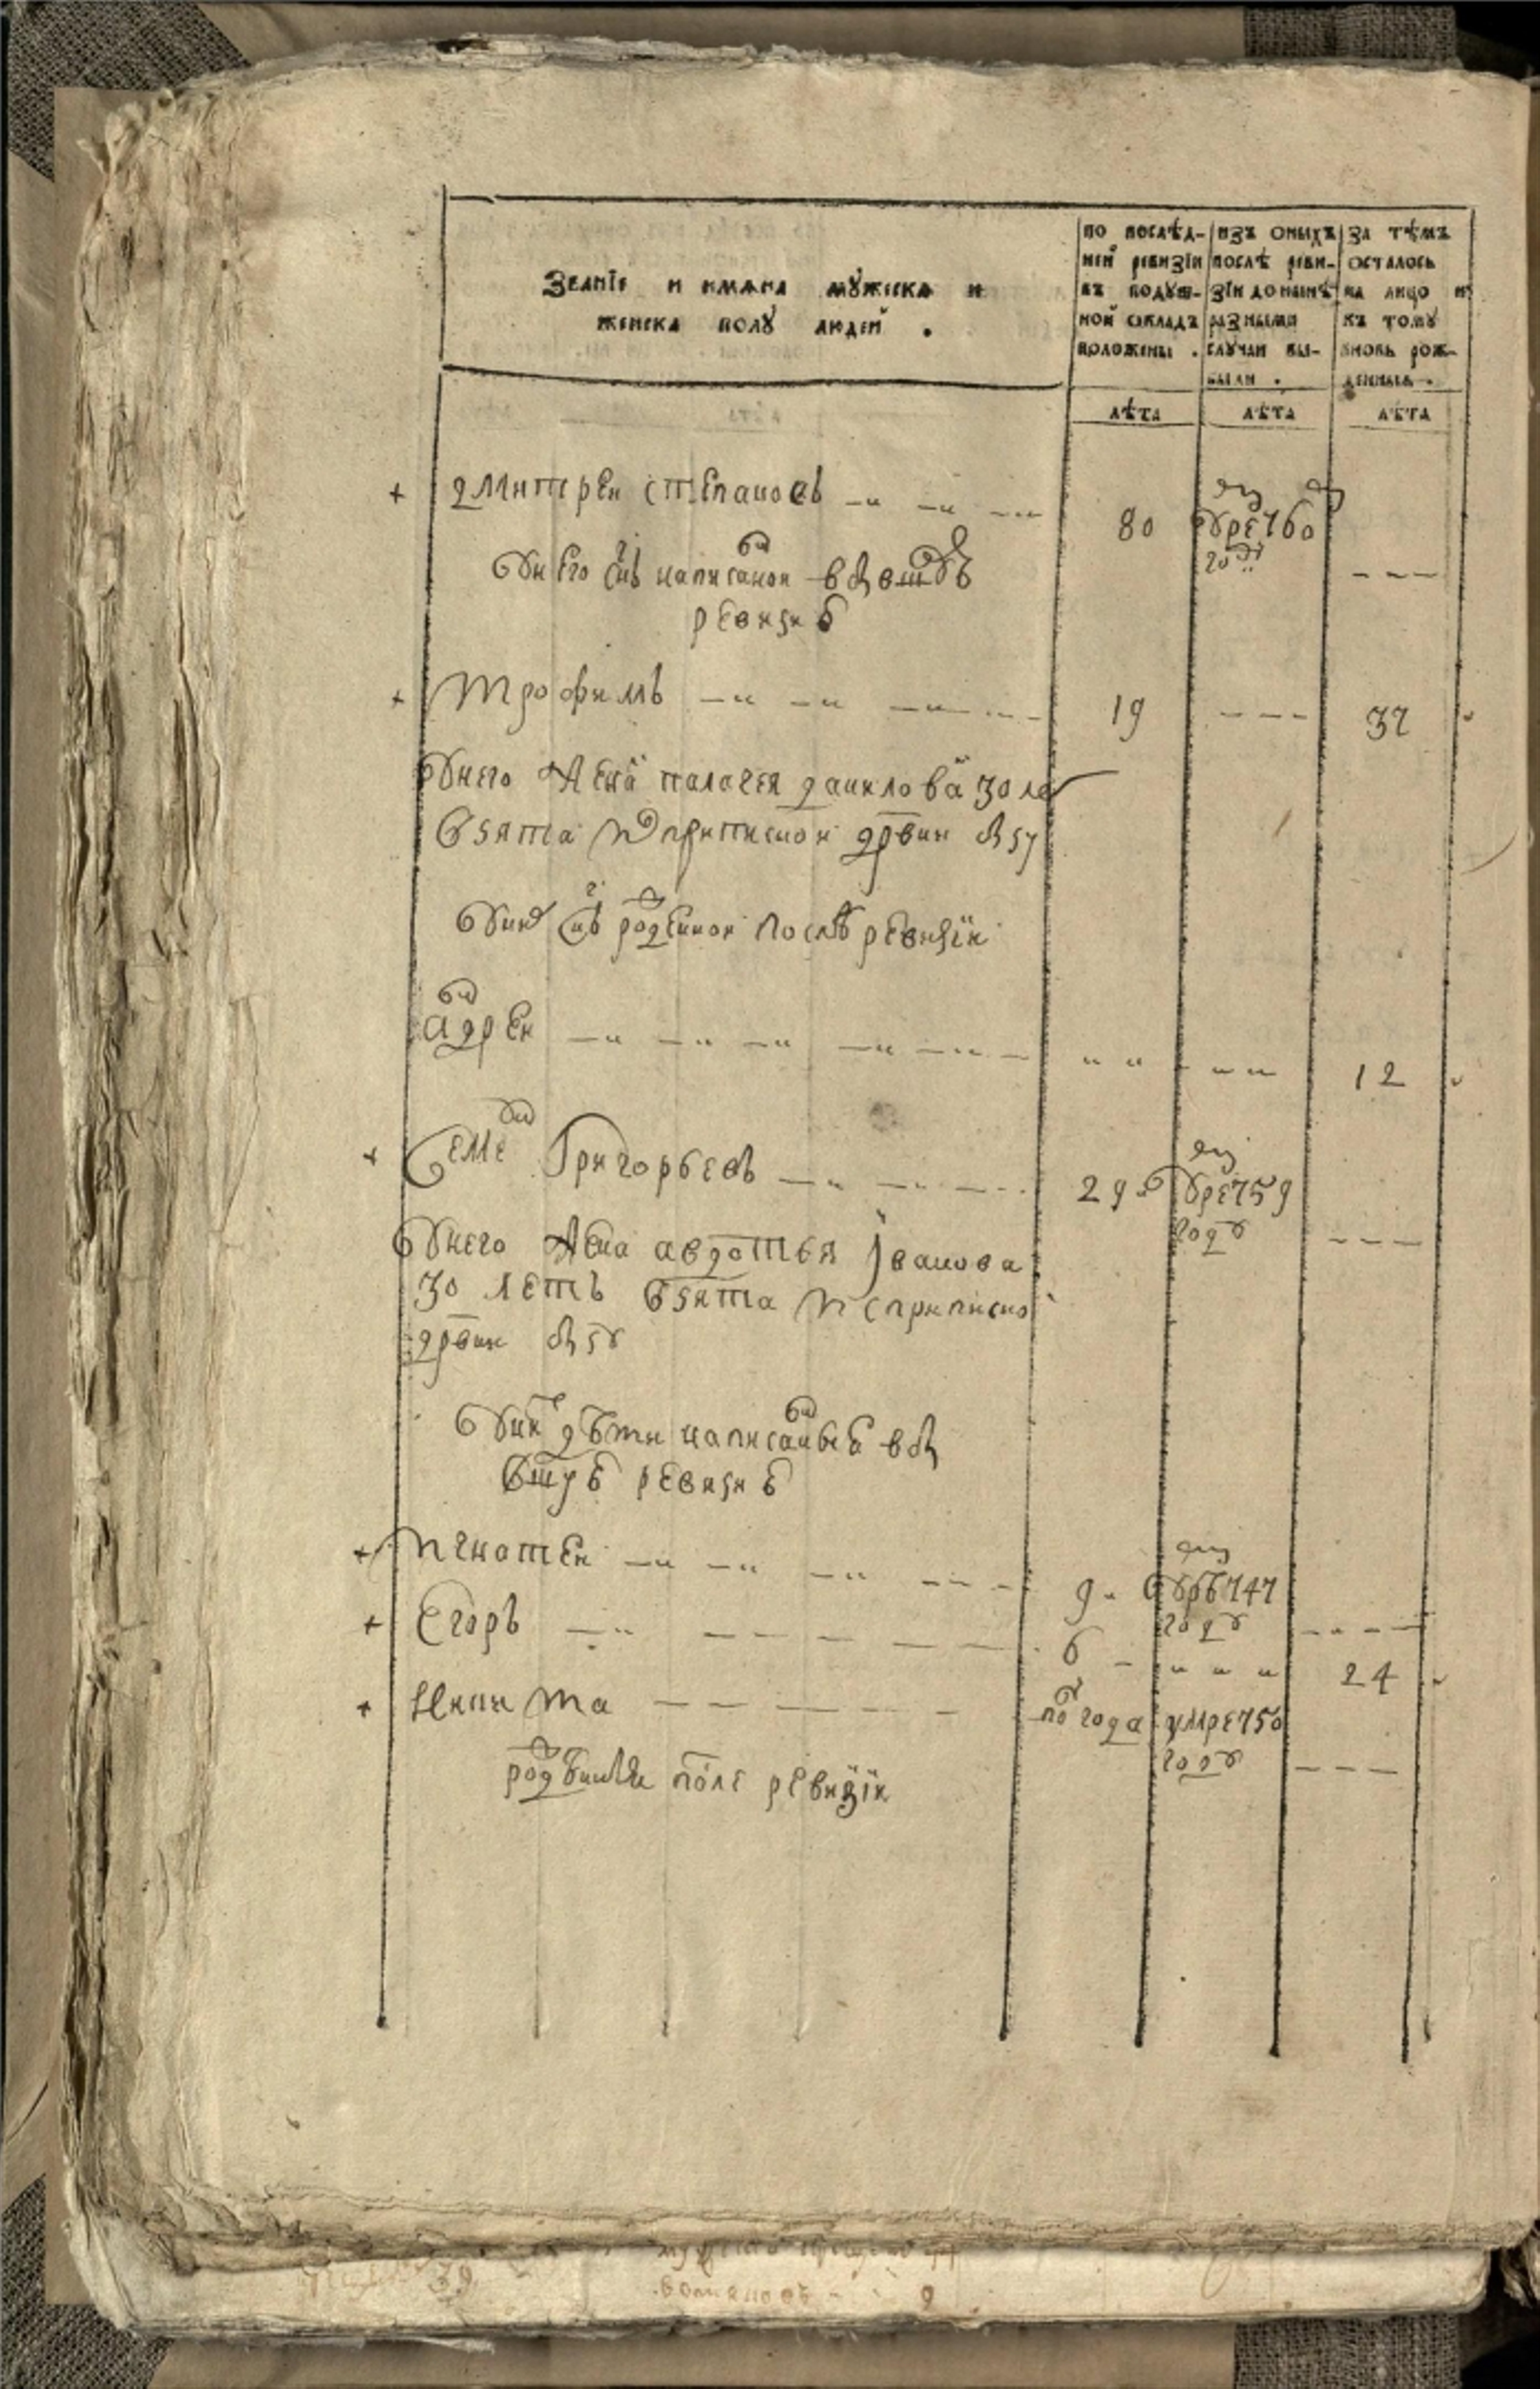 Званїе и имѧна мꙋжеска и
женска полꙋ людей .
по послѣд-
ней ревизїи
въ подуш-
ной окладъ
положены .
изъ оныхъ
послѣ реви-
зїи до нынѣ
разными
случаи вы-
были .
за тѣмъ
осталось
на лицо и
къ тому
вновь рож-
денныя .
лѣта
лѣта
лѣта
+ дмитреи степановъ
80
умре 760
году
у него снъ написанои в
ревизи
+ трофимъ
19
32
у него жена палагея данилова 30 ле
взята приписнои дрвни
снъ рожденнои послѣ ревизїи
андреи
12
+ Семен Григорьевъ
29
умре 759
году
у него жена авдотья Iванова
30 летъ взята ис приписно
дрвни
у них дѣти написанные в
ревизи
+ игнатеи
9
747
году
+ Егоръ
6
24
+ Никита
пол года
умре 750
году
рожденные после ревизїи